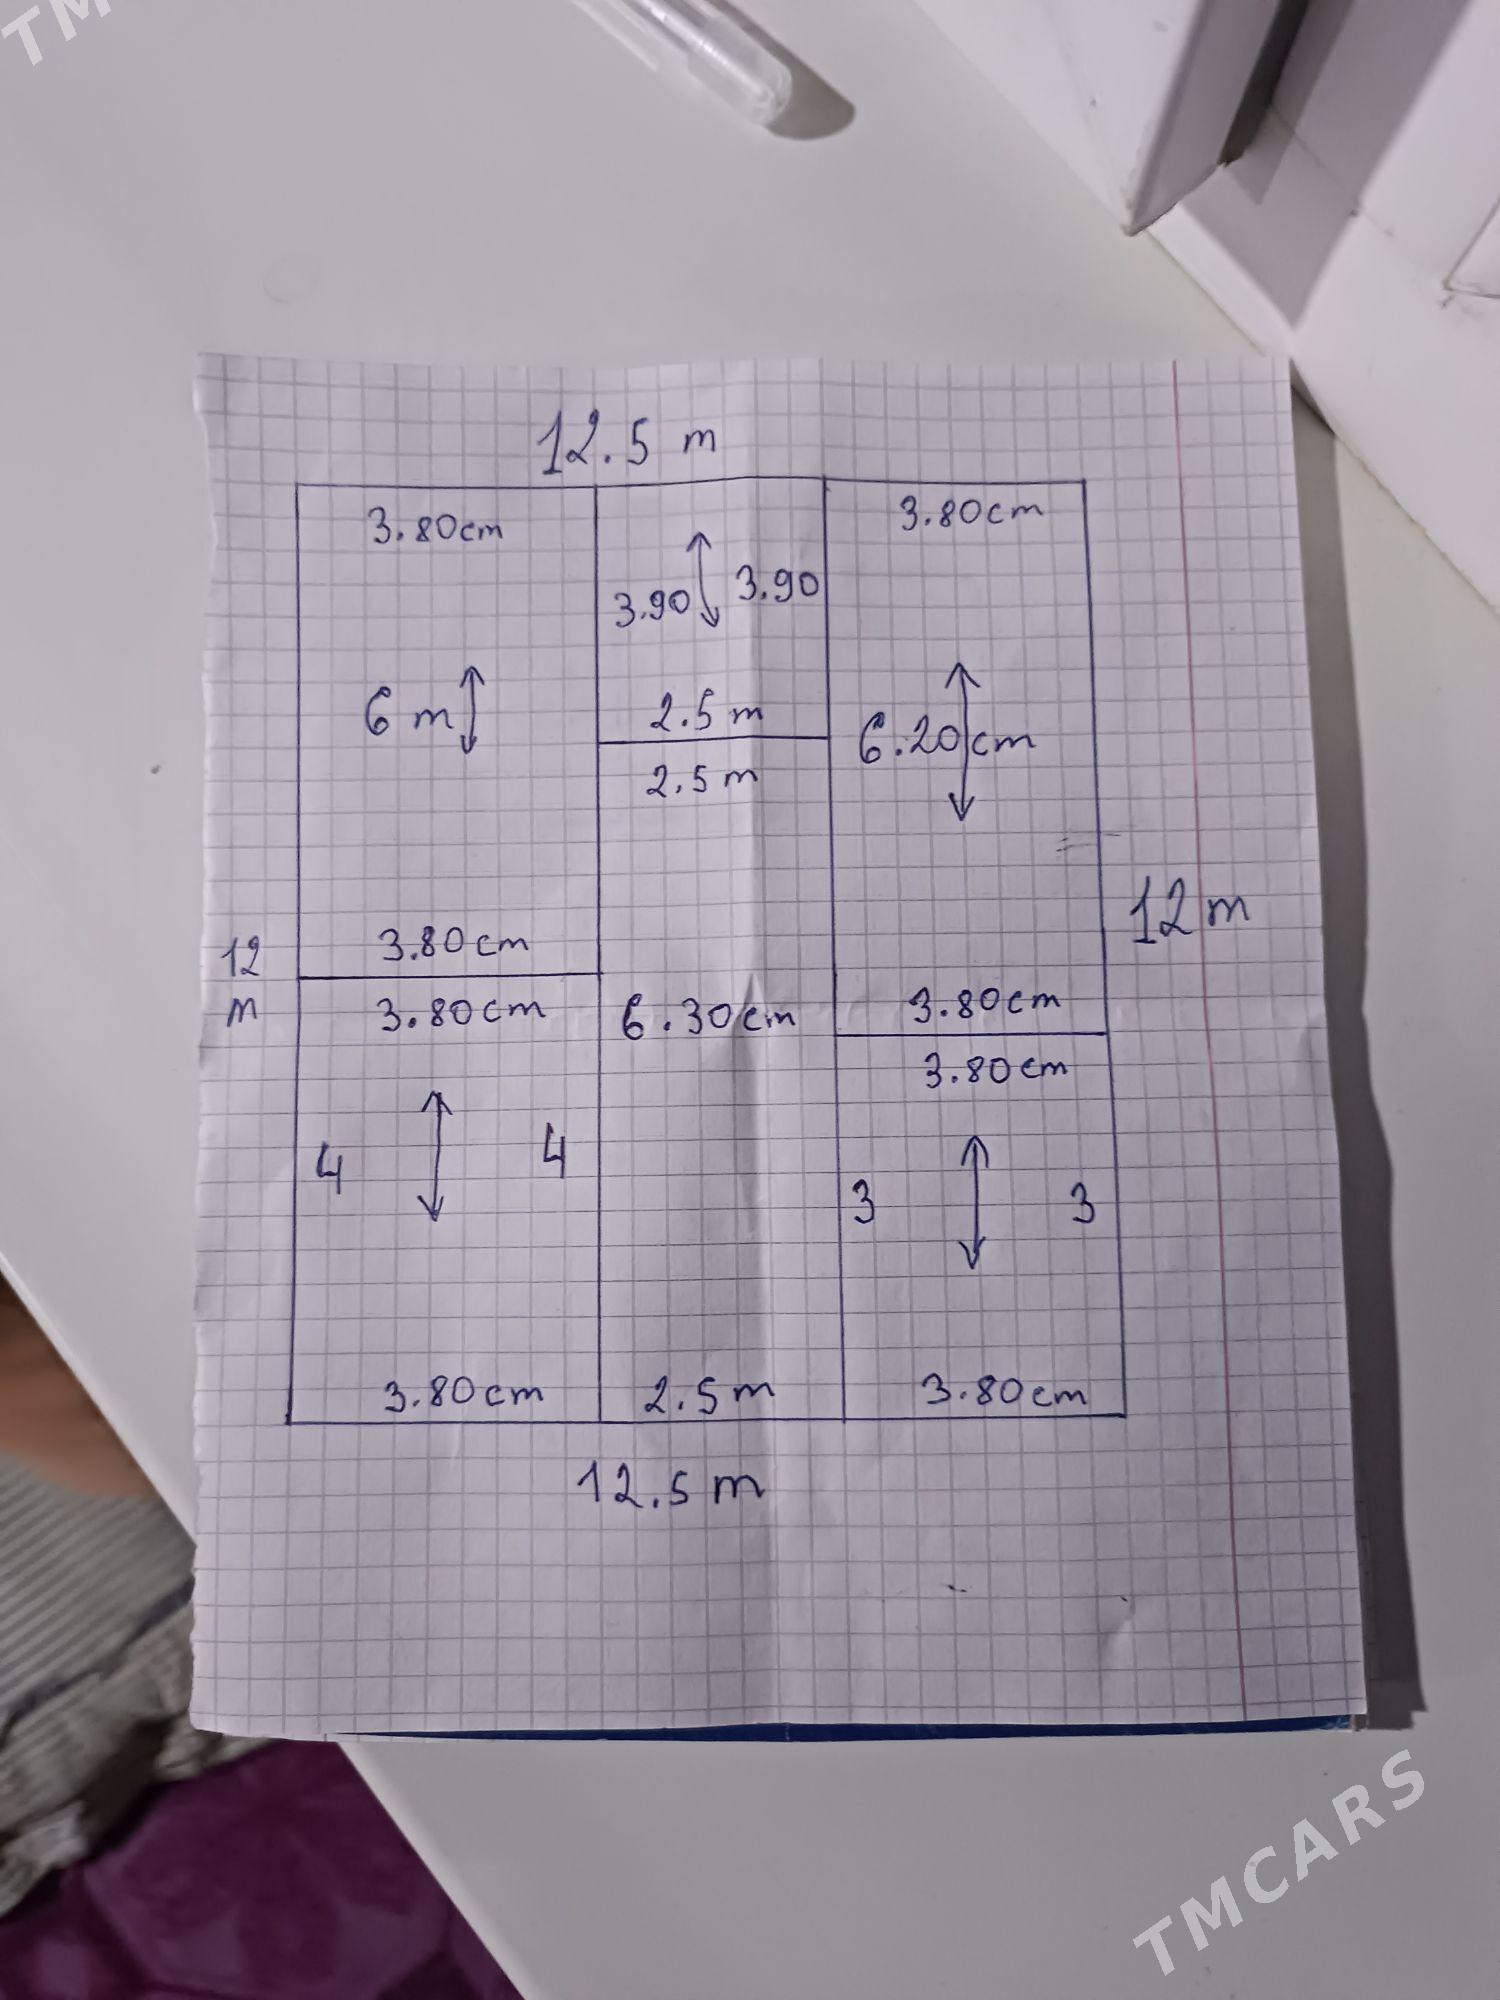 TM
12.5 m
3.80cm
3.80cm
3.90 3.90
6 m
2.5 m
6.20cm
2.5 m
12 m
3.80cm
12
m
3.80cm
3.80cm
6.30cm
3.80cm
4 4
3 3
3.80cm
2.5 m
3.80cm
12.5 m
TMCARS